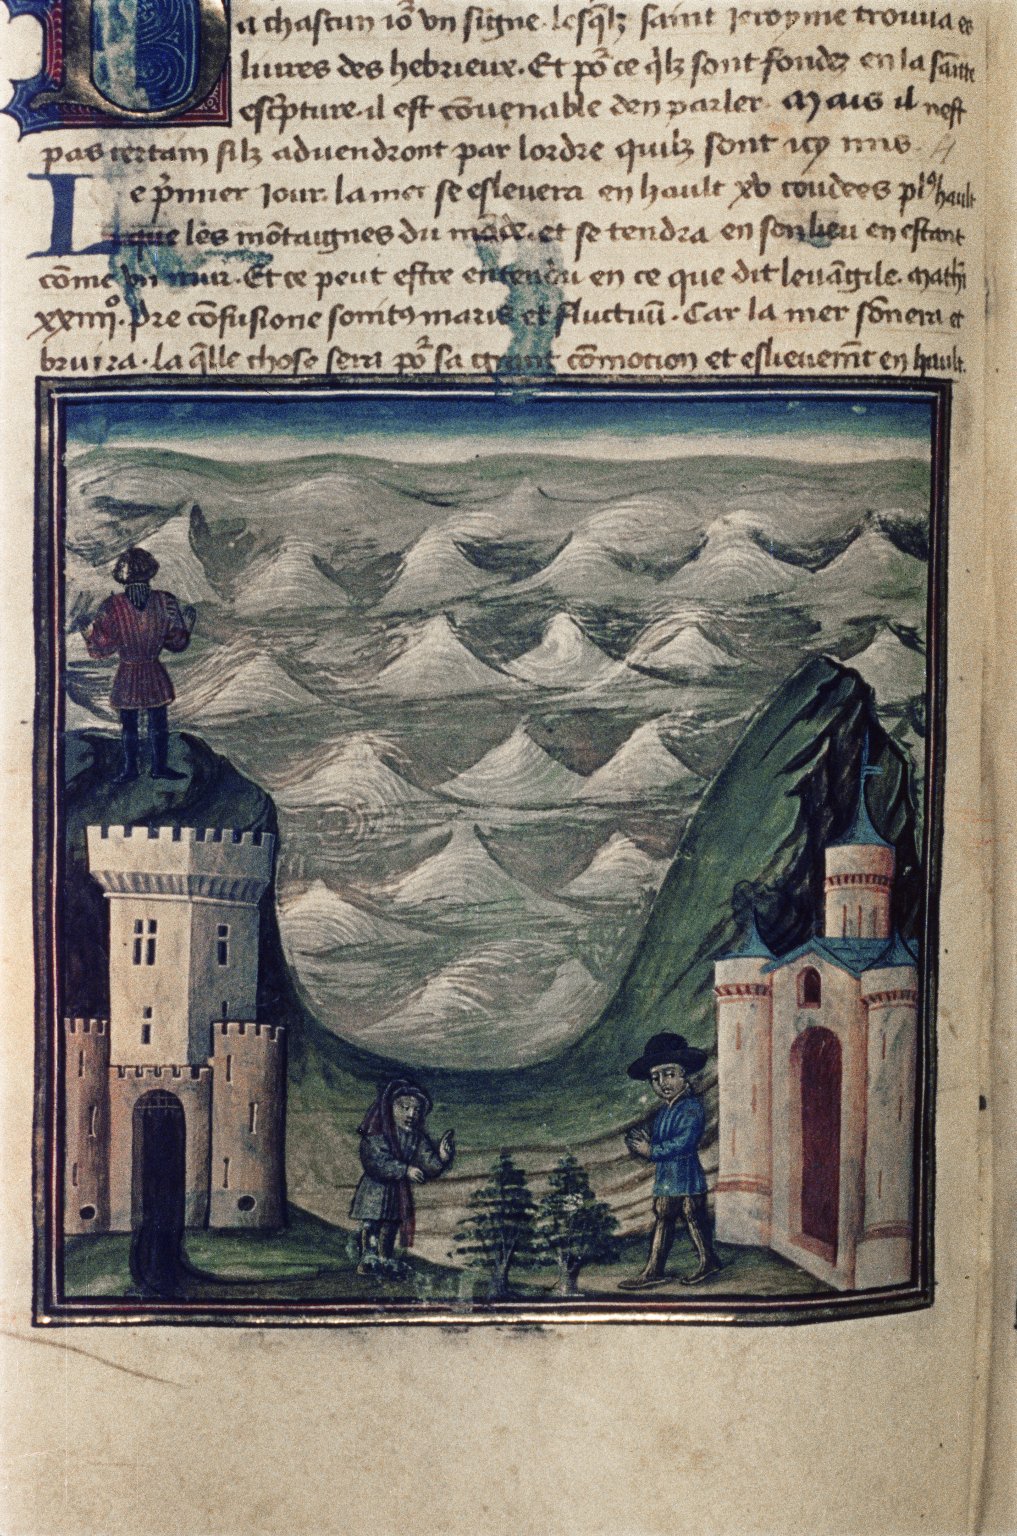 a chascun io᷑ vn signe. lesq̃lz saint Jeroyme trouua es
liures des hebrieux. Et po᷑ ce q̃lz sont fondez en la sainte
esc̃pture. il est cõuenable den parler. Mais il nest
pas certain silz aduendront par lordre quilz sont icy mis.
Le p̃mier Jour. la mer se esleuera en hault xv coudees pl᷒ hault
que les mõtaignes du mõde. et se tendra en son lieu en estant
cõme vn mur. Et ce peut estre entendu en ce que dit leuãgile. Math̃
xxiiiiº. Pre cõfusione sonit᷒ maris et fluctuũ. Car la mer sõnera et
bruira. la q̃lle chose sera po᷑ sa grant cõmocion et eslieuem̃t en hault.